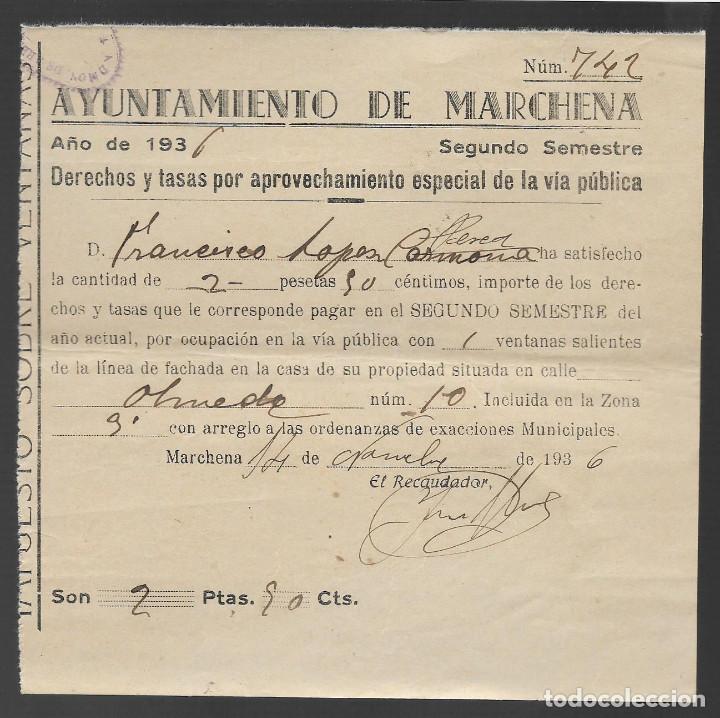 Núm. 742
AYUNTAMIENTO DE MARCHENA
Año de 1936 Segundo Semestre
Derechos y tasas por aprovechamiento especial de la vía pública
D. Francisco Lopez Carmona ha satisfecho
la cantidad de 2 - pesetas 50 céntimos, importe de los dere-
chos y tasas que le corresponde pagar en el SEGUNDO SEMESTRE del
año actual, por ocupación en la vía pública con 1 ventanas salientes
de la línea de fachada en la casa de su propiedad situada en calle
Olmedo núm. 10. Incluida en la Zona
3ª con arreglo a las ordenanzas de exacciones Municipales.
Marchena 14 de de 1936
El Recaudador,
Son 2 Ptas. 50 Cts.
IMPUESTO SOBRE VENTANAS
todocoleccion